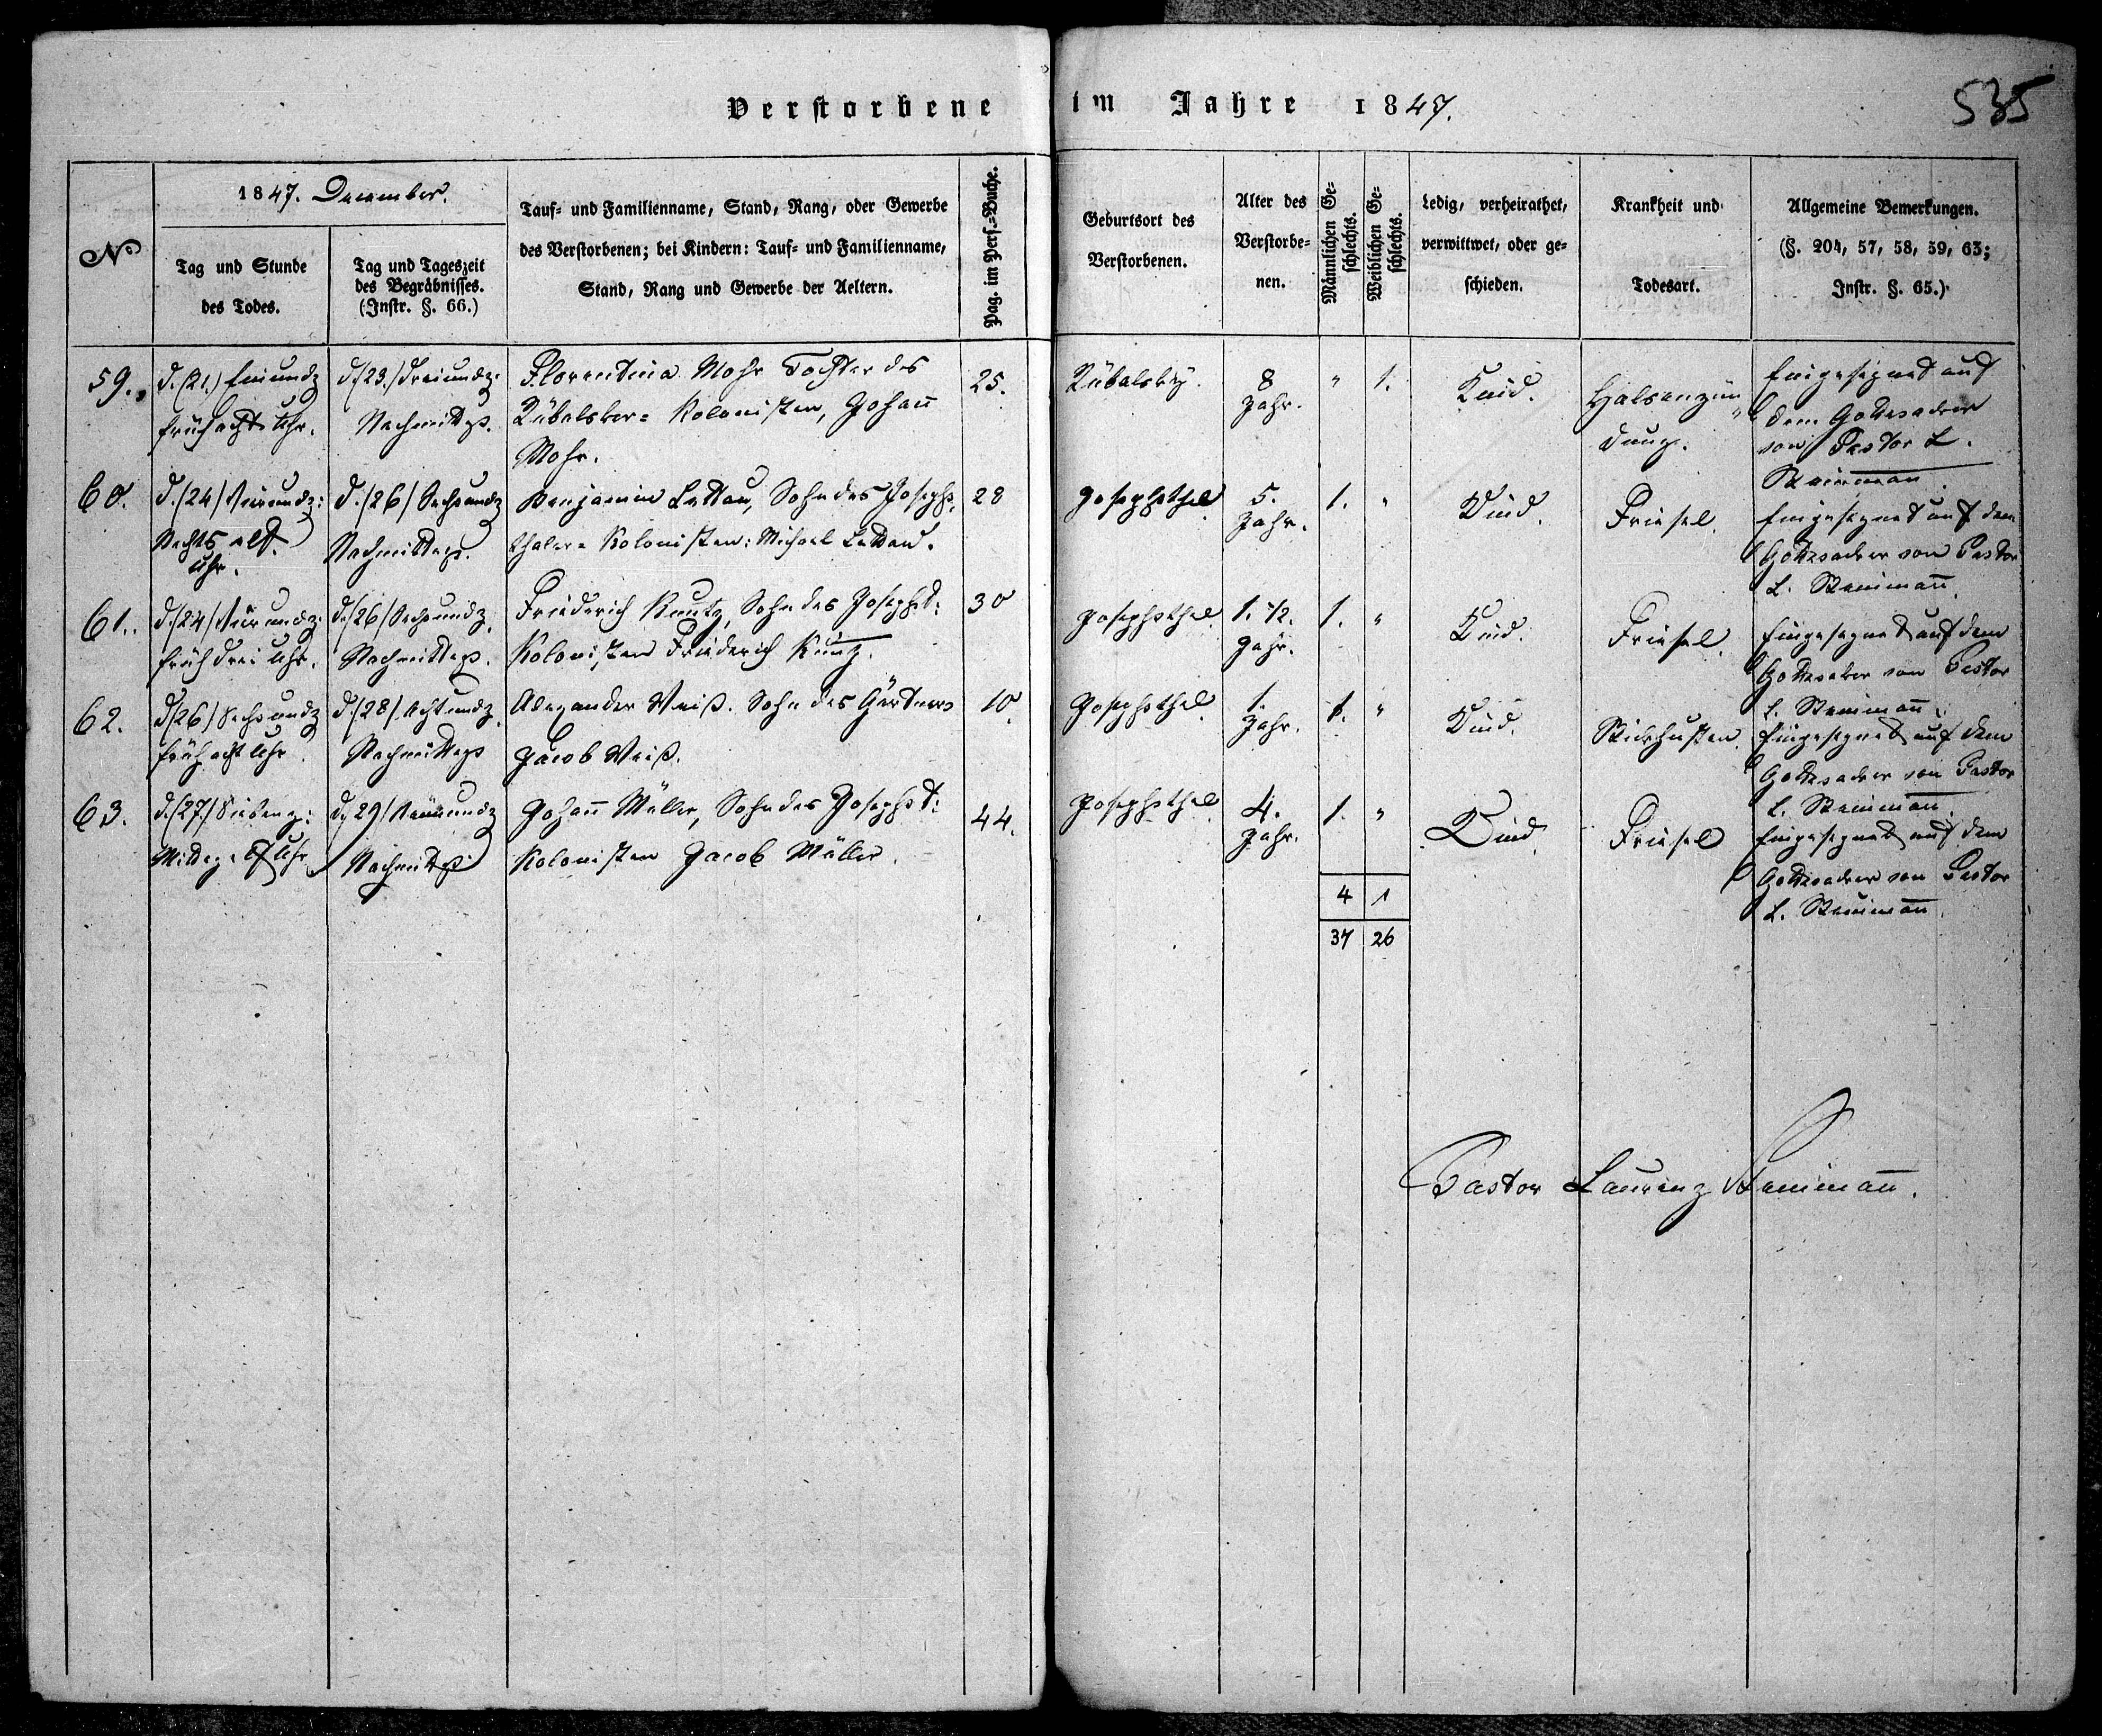 Verstorbene im Jahre 1847.
535
No
1847. December.
Tag und Stunde
des Todes.
Tag und Tageszeit
des Begräbnisses.
(Instr. §. 66.)
Tauf- und Familienname, Stand, Rang, oder Gewerbe
des Verstorbenen; bei Kindern: Tauf- und Familienname,
Stand, Rang und Gewerbe der Aeltern.
Pag. im Pers.-Buche.
Geburtsort des
Verstorbenen.
Alter des
Verstorbe-
nen.
Männlichen Ge-
schlechts.
Weiblichen Ge-
schlechts.
Ledig, verheirathet,
verwittwet, oder ge-
schieden.
Krankheit und
Todesart.
Allgemeine Bemerkungen.
(§. 204, 57, 58, 59, 63;
Instr. §. 65.)
59.
d. (21.) Einundz
früh acht Uhr.
d. (23.) Dreiundz:
Nachmittgs.
Florentina Mohr Tochter des
Kolonisten, Johan̄
Mohr.
25.
8
Jahr.
" 1.
Kind.
Halsenzün
dung.
Eingesegnet auf
dem Gottesacker
von Pastor L.
Steinman̄
60.
d. (24) Vierundz:
Nachts elf
Uhr.
d. (26) Sechsundz
Nachmittgs.
Benjamin Lettau, Sohn des Josephs,
thaler= Kolonisten: Michael Lettau.
28
Josephsthal
5.
Jahr.
1. "
Kind.
Friesel.
Eingesegnet auf dem
Gottesacker von Pastor
L. Steinman̄.
61.
d. (24) Vierundz:
früh drei Uhr.
d. (26) Sechsundz.
Nachmittgs.
Friederich Kuntz, Sohn des Josephst:
Kolonisten Friederich Kuntz.
30
Josephsthal.
1. 1/2.
Jahr.
1. "
Kind.
Friesel.
Eingesegnet auf dem
Gottesaker von Pastor
L. Steinman̄.
62.
d. (26) Sechsundz
früh acht Uhr.
d. (28) Achtundz.
Nachmittgs
Alexander Weiß. Sohn des Gärtners
Jacob Weiß.
10
Josephsthal
1.
Jahr.
1. "
Kind.
Stickhusten.
Eingesegnet auf dem
Gottesacker von Pastor
L. Steinman̄.
63.
d. (27) Siebenz:
Uhr
d. (29) Neunundz
Nachmittgs
Johan̄ Müller, Sohn des Josephst:
Kolonisten Jacob Müller.
44.
Josephsthal
4.
Jahr.
1. "
Kind.
Friesel
Eingesegnet auf dem
Gottesacker von Pastor
L. Steinman̄.
4 1
37 26
Pastor Laurenz Steinman̄.